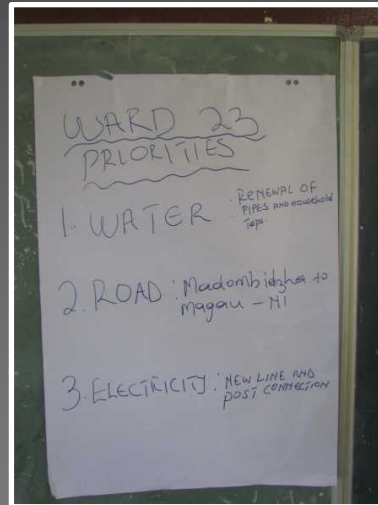 WARD 23
PRIORITIES
1. WATER : RENEWAL OF
PIPES AND HOUSEHOLD
Taps.
2. ROAD : Madombidzha to
Magau - N1
3. ELECTRICITY : NEW LINE AND
POST CONNECTION